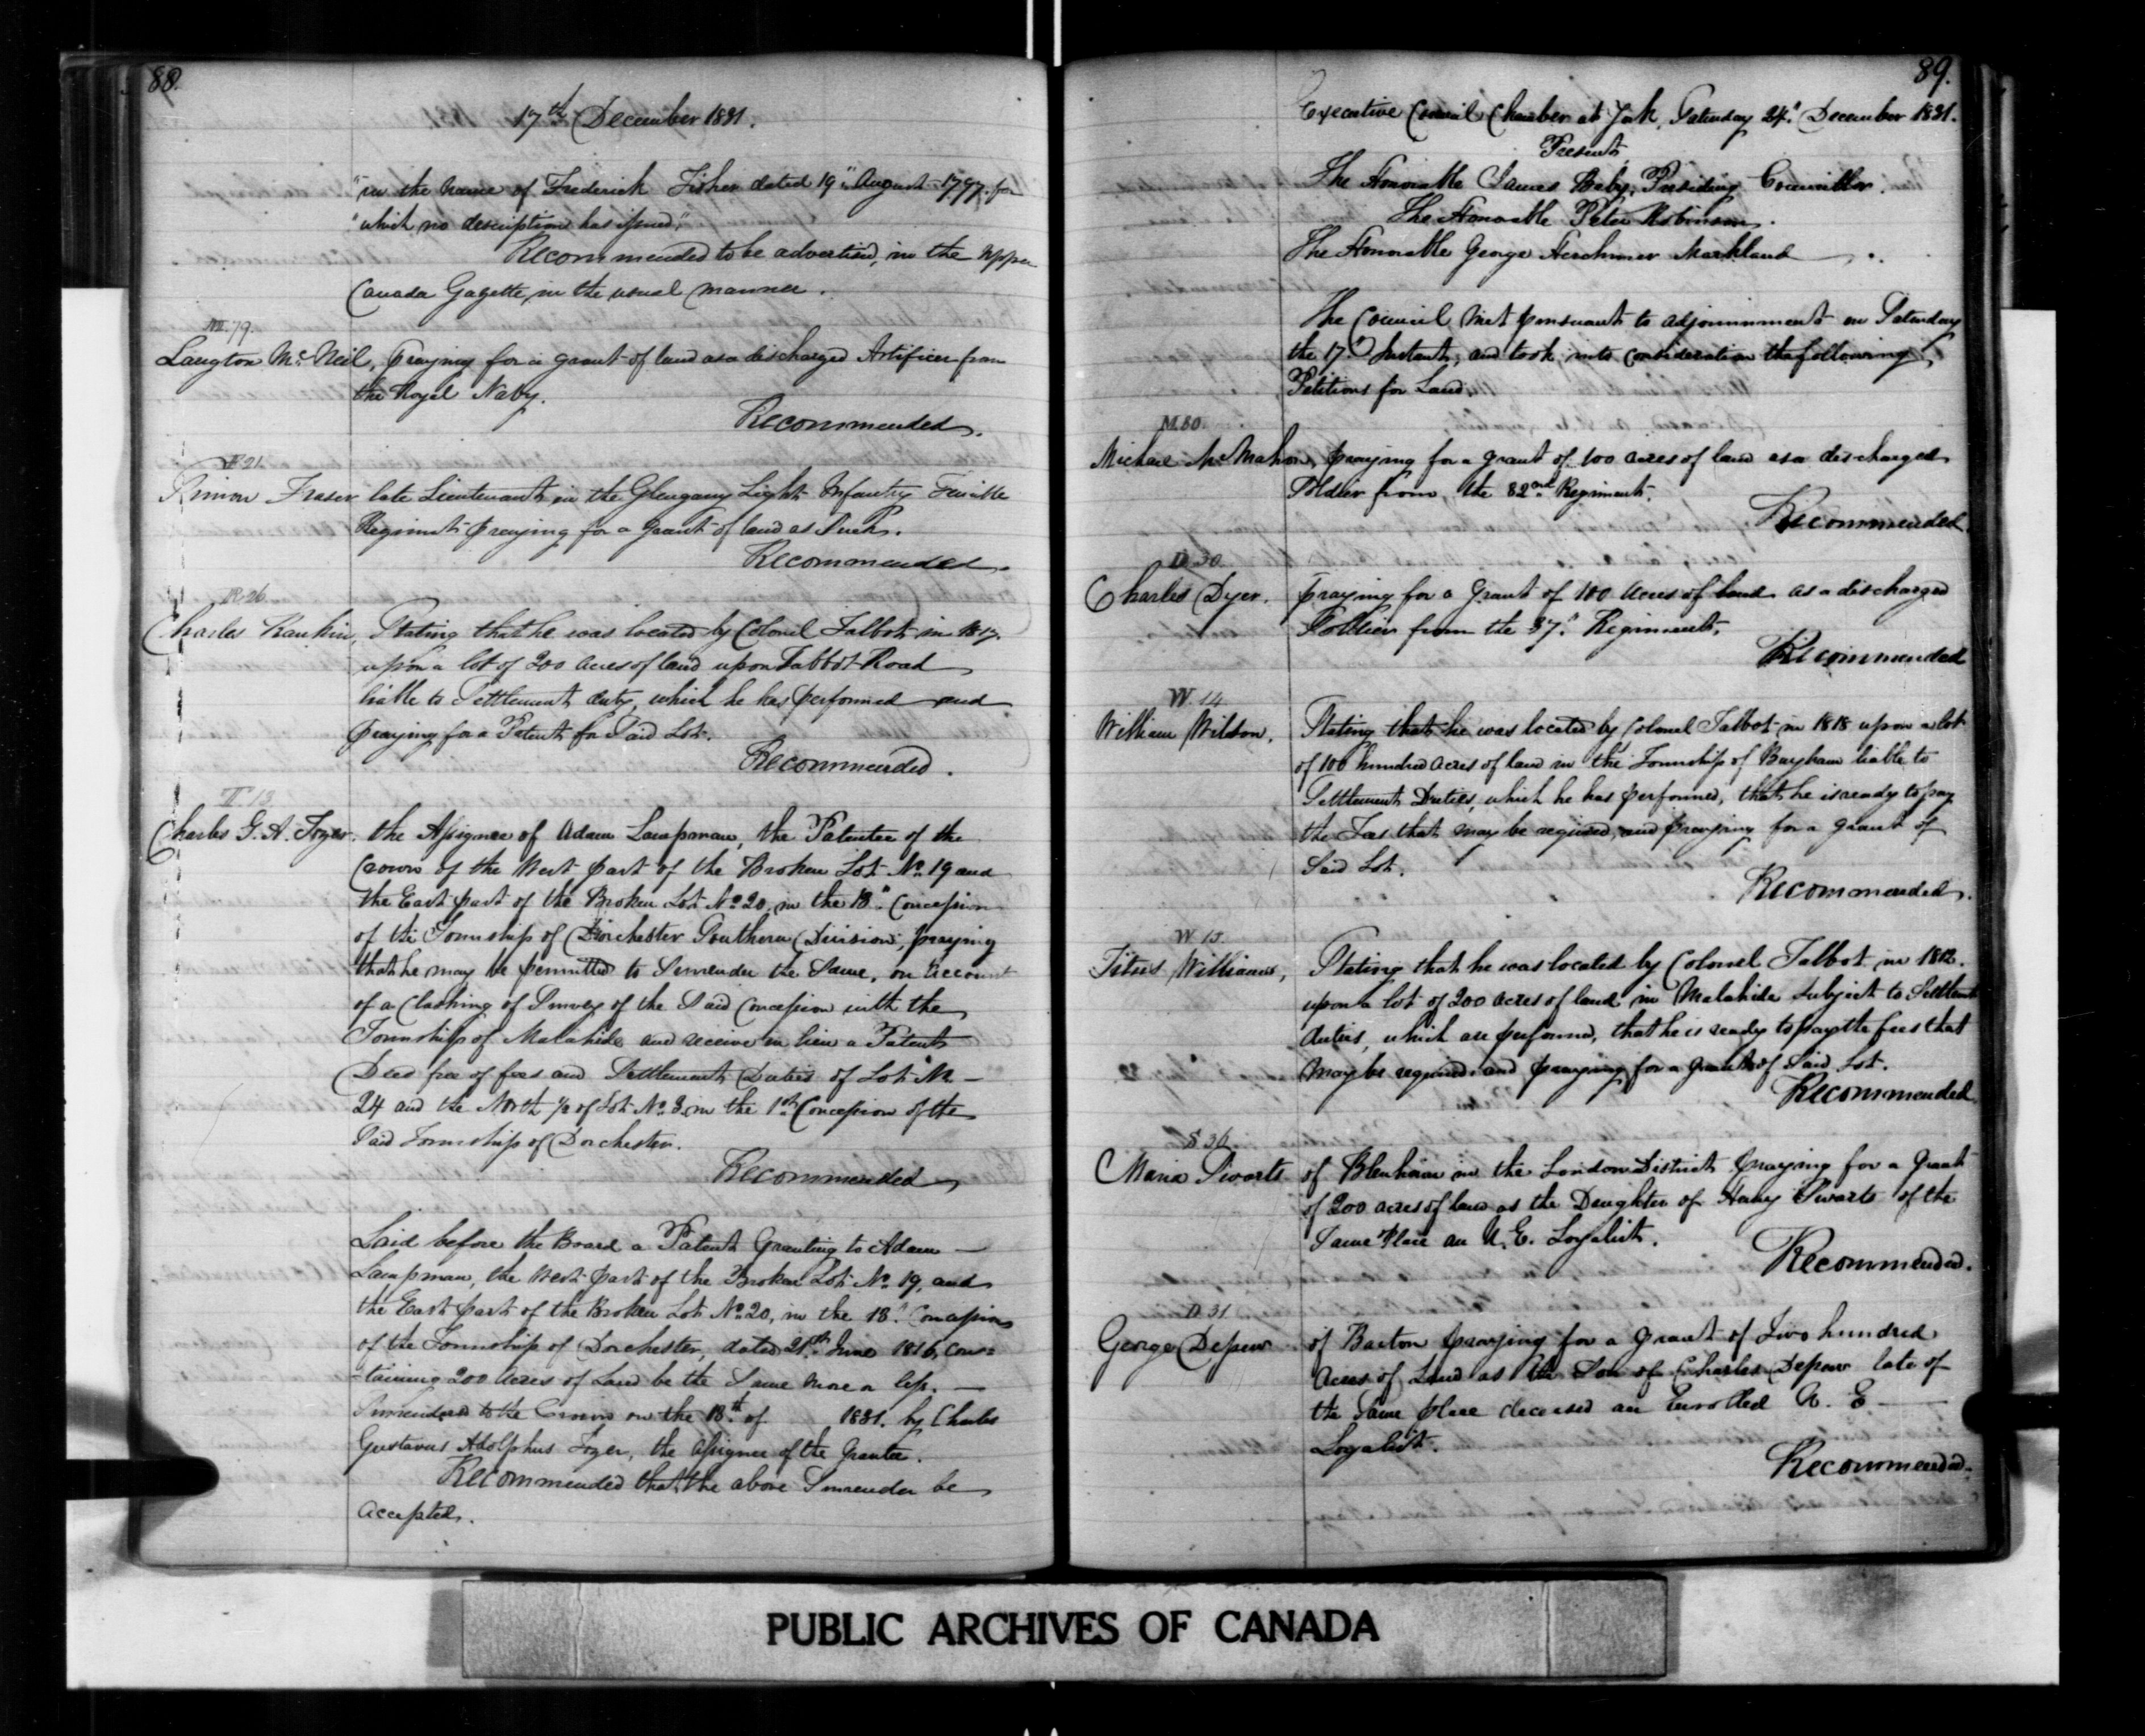 88.
17th December 1831.
"in the name of Frederick Fisher dated 19" August 1797. for
"which no description has issued,"
Recommended to be advertised, in the Upper
Canada Gazette, in the usual manner.
M. 79.
Langton Mc Neil, praying for a grant of land as a discharged Artificer from
the Royal Navy.
Recommended.
F 21.
Simon Fraser late Lieutenant in the Glengary Light Infantry Fencible
Regiment praying for a grant of land as Such.
Recommended.
R. 26
Charles Rankin, Stating that he was located by Colonel Talbot in 1817.
upon a lot of 200 acres of land upon Talbot Road
liable to Settlement duty, which he has performed and
praying for a Patent for Said Lot.
Recommended.
T 13
Charles G. A. Tozer. the Assignee of Adam Lampman, the Patentee of the
Crown of the West part of the Broken Lot No. 19 and
the East part of the Broken Lot No. 20, in the 13" Concession
of the Township of Dorchester Southern Division, praying
that he may be permitted to Surrender the Same, on account
of a Clashing of Survey of the Said Concession with the
Township of Malahide and receive in lieu a Patent
Deed free of fees and Settlement Duties of Lot No. —
24 and the North ½ of Lot No. 3 in the 1st Concession of the
Said Township of Dorchester.
Recommended
Laid before the Board a Patent Granting to Adam —
Lampman, the West part of the Broken Lot No. 19, and
the East part of the Broken Lot No. 20, in the 13" Concession
of the Township of Dorchester, dated 21st June 1816, Con=
=taining 200 Acres of Land be the Same More or less. —
Surrendered to the Crown on the 13th of 1831. by Charles
Gustavus Adolphus Tozer, the assignee of the Grantee.
Recommended that the above Surrender be
accepted.
89.
Executive Council Chamber at York, Saturday 24" December 1831.
Present
The Honorable James Baby, Presiding Councillor.
The Honorable Peter Robinson.
The Honorable George Herchmer Markland
The Council Met pursuant to adjournment on Saturday
the 17" Instant, and took into consideration the following
Petitions for Land.
M. 80.
Michael McMahon, praying for a grant of 100 acres of land as a discharged
Soldier from the 82nd Regiment.
Recommended.
D 30
Charles Dyer, praying for a Grant of 100 Acres of land as a discharged
Soldier from the 37" Regiment.
Recommended
W. 14
William Wilson, Stating that he was located by Colonel Talbot in 1818 upon a lot
of 100 hundred acres of land in the Township of Bayham liable to
Settlement Duties, which he has performed, that he is ready to pay
the Fees that may be required, and praying for a grant of
Said Lot.
Recommended.
W 15.
Titus Williams, Stating that he was located by Colonel Talbot in 1812.
upon a lot of 200 acres of land in Malahide subject to Settlement
duties, which are performed, that he is ready to pay the fees that
may be required and praying for a grant of Said Lot.
Recommended
S 36.
Maria Swarts of Blenheim in the London District praying for a Grant
of 200 acres of land as the Daughter of Henry Swarts of the
Same Place an U. E. Loyalist.
Recommended.
D 31
George Depew of Barton praying for a grant of Two hundred
Acres of Land as the Son of Charles Depew late of
the Same place deceased an Enrolled U. E —
Loyalist.
Recommended.
PUBLIC ARCHIVES OF CANADA